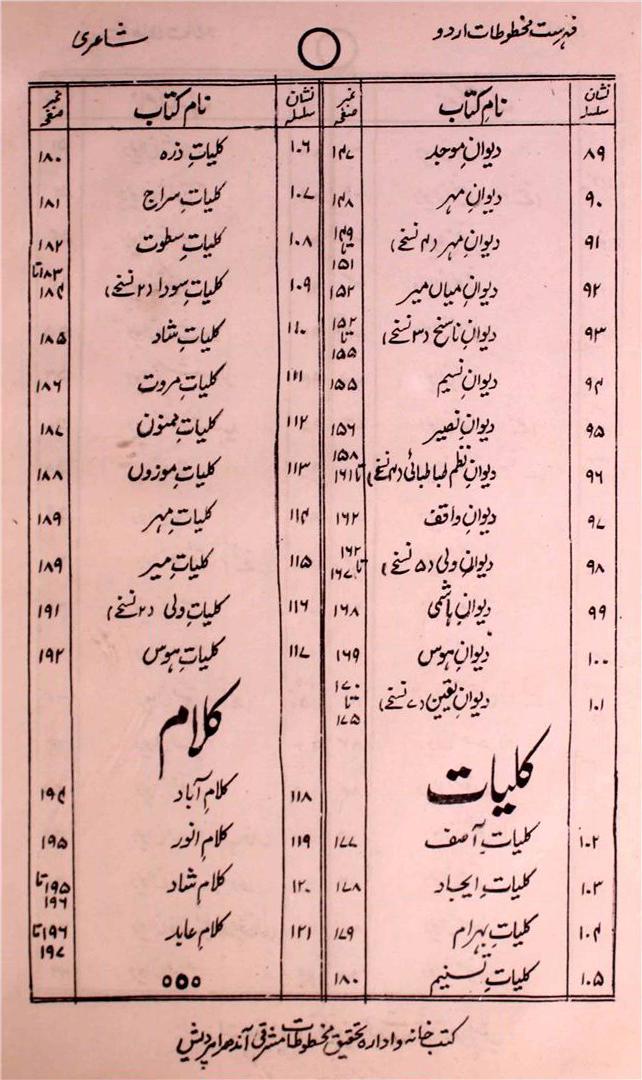 فہرست مخطوطات اردو
شاعری
نشان سلسلہ | نام کتاب | نمبر صفحہ
۸۹ | دیوانِ موجد | ۱۴۷
۹۰ | دیوانِ مہر | ۱۴۸
۹۱ | دیوانِ مہر (۴ نسخے) | ۱۴۹ تا ۱۵۱
۹۲ | دیوانِ میاں میر | ۱۵۲
۹۳ | دیوانِ ناسخ (۳ نسخے) | ۱۵۲ تا ۱۵۵
۹۴ | دیوانِ نسیم | ۱۵۵
۹۵ | دیوانِ نصیر | ۱۵۶
۹۶ | دیوانِ نظم طباطبائی (۴ نسخے) | ۱۵۸ تا ۱۶۱
۹۷ | دیوانِ واقف | ۱۶۲
۹۸ | دیوانِ ولی (۵ نسخے) | ۱۶۲ تا ۱۶۷
۹۹ | دیوانِ ہاشمی | ۱۶۸
۱۰۰ | دیوانِ ہوس | ۱۶۹
۱۰۱ | دیوانِ یقین (۷ نسخے) | ۱۷۰ تا ۱۷۵
کلیات
۱۰۲ | کلیاتِ آصف | ۱۷۷
۱۰۳ | کلیاتِ ایجاد | ۱۷۸
۱۰۴ | کلیاتِ بہرام | ۱۷۹
۱۰۵ | کلیاتِ تسنیم | ۱۸۰
نشان سلسلہ | نام کتاب | نمبر صفحہ
۱۰۶ | کلیاتِ ذرہ | ۱۸۰
۱۰۷ | کلیاتِ سراج | ۱۸۱
۱۰۸ | کلیاتِ سطوت | ۱۸۲
۱۰۹ | کلیاتِ سودا (۲ نسخے) | ۱۸۳ تا ۱۸۴
۱۱۰ | کلیاتِ شاد | ۱۸۵
۱۱۱ | کلیاتِ مروت | ۱۸۶
۱۱۲ | کلیاتِ ممنون | ۱۸۷
۱۱۳ | کلیاتِ موزوں | ۱۸۸
۱۱۴ | کلیاتِ مہر | ۱۸۹
۱۱۵ | کلیاتِ میر | ۱۸۹
۱۱۶ | کلیاتِ ولی (۲ نسخے) | ۱۹۱
۱۱۷ | کلیاتِ ہوس | ۱۹۲
کلام
۱۱۸ | کلامِ آباد | ۱۹۴
۱۱۹ | کلامِ انور | ۱۹۵
۱۲۰ | کلامِ شاد | ۱۹۵ تا ۱۹۶
۱۲۱ | کلامِ عابد | ۱۹۶ تا ۱۹۷
ooo
کتب خانہ و ادارہ تحقیق مخطوطات مشرقی آندھرا پردیش